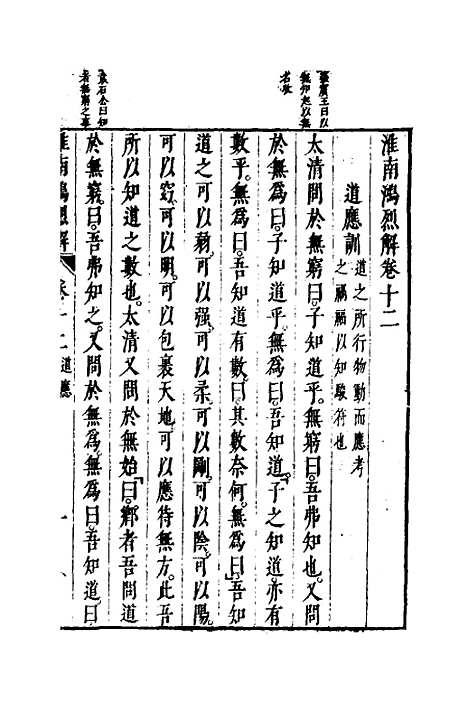 淮南鴻烈解卷十二
道應訓
道之所行物動而應考
之禍福以知驗符也
太清問於無窮曰子知道乎無窮曰吾弗知也又問
於無為曰子知道乎無為曰吾知道子之知道亦有
數乎無為曰吾知道有數曰其數奈何無為曰吾知
道之可以弱可以强可以柔可以剛可以陰可以陽
可以窈可以明可以包裹天地可以應待無方此吾
所以知道之數也太清又問於無始曰鄉者吾問道
於無窮曰吾弗知之又問於無為無為曰吾知道曰
淮南鴻烈解 卷十二 道應 一
王曰以
無
名
石公曰知
者無窮之事